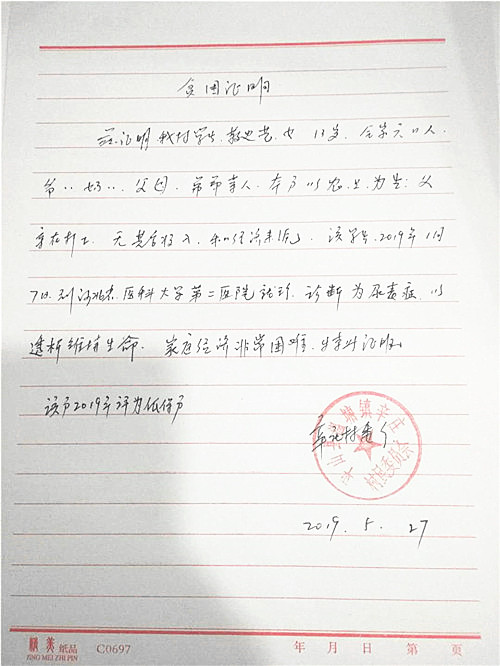 贫困证明
兹证明我村学生 也 13岁, 全家六口人,
爷、奶、父母、弟弟本人, 本户以农业为生, 父
亲在打工, 无其它收入, 和经济来源, 该学生2019年1月
7日, 到河北 医科大学第二医院就诊, 诊断为尿毒症, 以
透析维持生命, 家庭经济非常困难, 特此证明。
该户2019年评为低保户
村委会
镇辛庄
村民委员会
2019. 5. 27
精美 纸品 C0697 年 月 日 第 页
JING MEI ZHI PIN